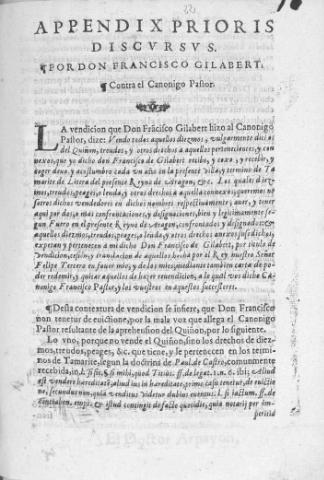 APPENDIX PRIORIS
DISCVRSVS.
¶POR DON FRANCISCO GILABERT.
¶Contra el Canonigo Pastor.
LA vendicion que Don Frãcisco Gilabert hizo al Canonigo
Pastor, dize: Vendo todos aquellos diezmos, vulgarmente dichos
del Quiñon, treudos, y otros drechos a aquellos pertenecientes, y con
nexos, que yo dicho don Francisco de Gilabert recibo, y cojo, y recibir, y
coger deuo, y acostumbro cada vn año en la presente villa, y termino de Ta
marite de Litera del presente Reyno de Aragon, &c. Los quales diez-
mos, treudos, peages, leuda, y otros drechos a aquellos conexos, queremos no
sotros dichos vendedores en dichos nombres respectiuamente, auer, y tener
aqui por dos, o mas confrontaciones, y designaciones, bien y legitimamente se-
gun Fuero en el presente Reyno de Aragon, confrontados, y designados: &
aquellos diezmos, treudos, peages, leuda, y otros drechos anexos susodichos,
espetan y pertenecen a mi dicho Don Francisco de Gilabert, por titulo de
vendicion, cession, y trãsportacion de aquellos hecha por el Rey nuestro Señor
Felipe Tercero en fauor mio, y de los mios, mediante tambien carta de po-
der redemir, y quitar aquellos de la qual vos dicho Ca-
nonigo Francisco Pastor, y los vuestros en aquestos succesores.
¶Desta contextura de vendicion se infiere, que Don Francisco
non tenetur de euictione, por la mala voz que allega el Canonigo
Pastor resultante de la aprehension del Quiñon, por lo siguiente.
Lo vno, porque no vende el Quiñon, sino los drechos de diez-
mos, treudos, peages, &c. que tiene, y le pertenecen en los termi-
nos de Tamarite, segun la doctrina de Paul de Castro, comunmente
recebida, in l. si sic, § si mihi, quod Titius. ff. de legat. 1. n. 6. ibi; Aliud
est vendere hæreditatẽ, aliud ius in hæreditate, primo casu tenetur, de euictio
ne, secundo non, quia venditus videtur dubius euentus. l. si iactum, ff. de
& istud contingit de facto quotidie, quia notarij per im-
peritiã